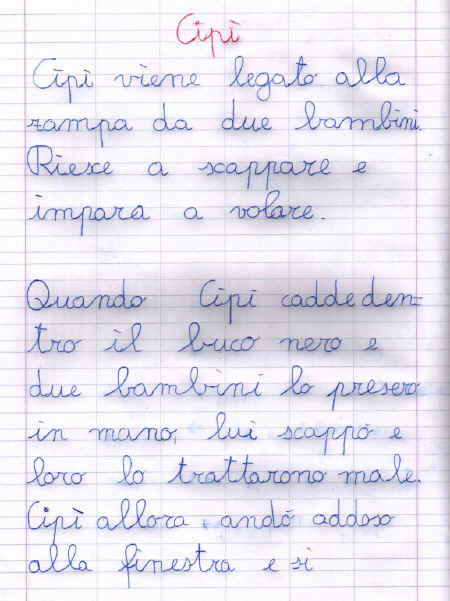 Cipì
Cipì viene legato alla
zampa da due bambini.
Riesce a scappare e
impara a volare.
Quando Cipì cadde den-
tro il buco nero e
due bambini lo presero
in mano, lui scappò e
loro lo trattarono male.
Cipì allora, andò addoso
alla finestra e si